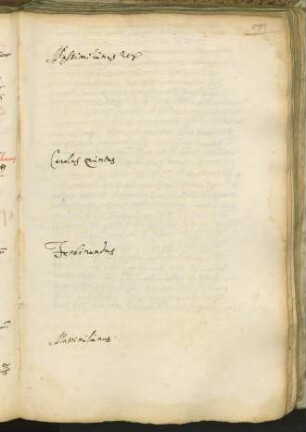 Massimilianus Rex
Carolus quintus
Ferdinandus
Massimilianus